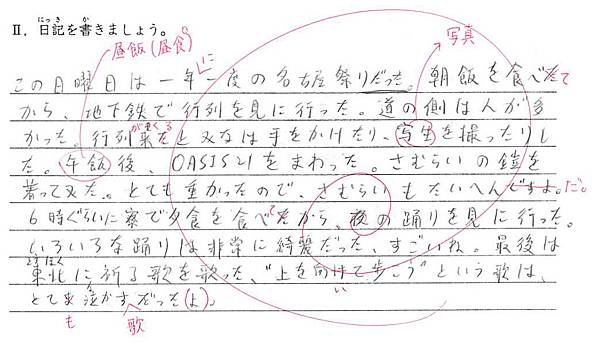 II. 日記を書きましょう。
にっき か
昼飯(昼食)
写真
に
この日曜日は一年一度の名古屋祭りだった。朝飯を食べたて
から、地下鉄で行列を見に行った。道の側は人が多
かった。行列来たと人々は手をかけたり、写生を撮ったりし
がくる
た。午飯後、OASIS21をまわった。さむらいの鎧を
着ってみた。とても重かったので、さむらいもたいへんですよ。だ。
6時ぐらいに寮で夕食を食べたから、夜の踊りを見に行った。
て
いろいろな踊りは非常に綺麗だった、すごいね。最後は
とうほく
東北に祈る歌を歌った、"上を向けて歩こう"という歌は、
い
とても泣かすだった(よ)。
も 歌